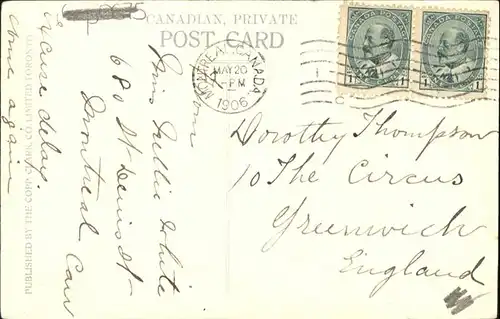 CANADIAN, PRIVATE
POST CARD
MONTREAL, CANADA
MAY 20
PM
1906
CANADA POSTAGE
CANADA POSTAGE
1 1
1 1
Dorothy Thompson
10 The Circus
Greenwich
England
from
Miss Nellie White
680 St Denis St
Montreal Can
excuse delay.
come again
PUBLISHED BY THE COPP, CLARK CO. LIMITED TORONTO